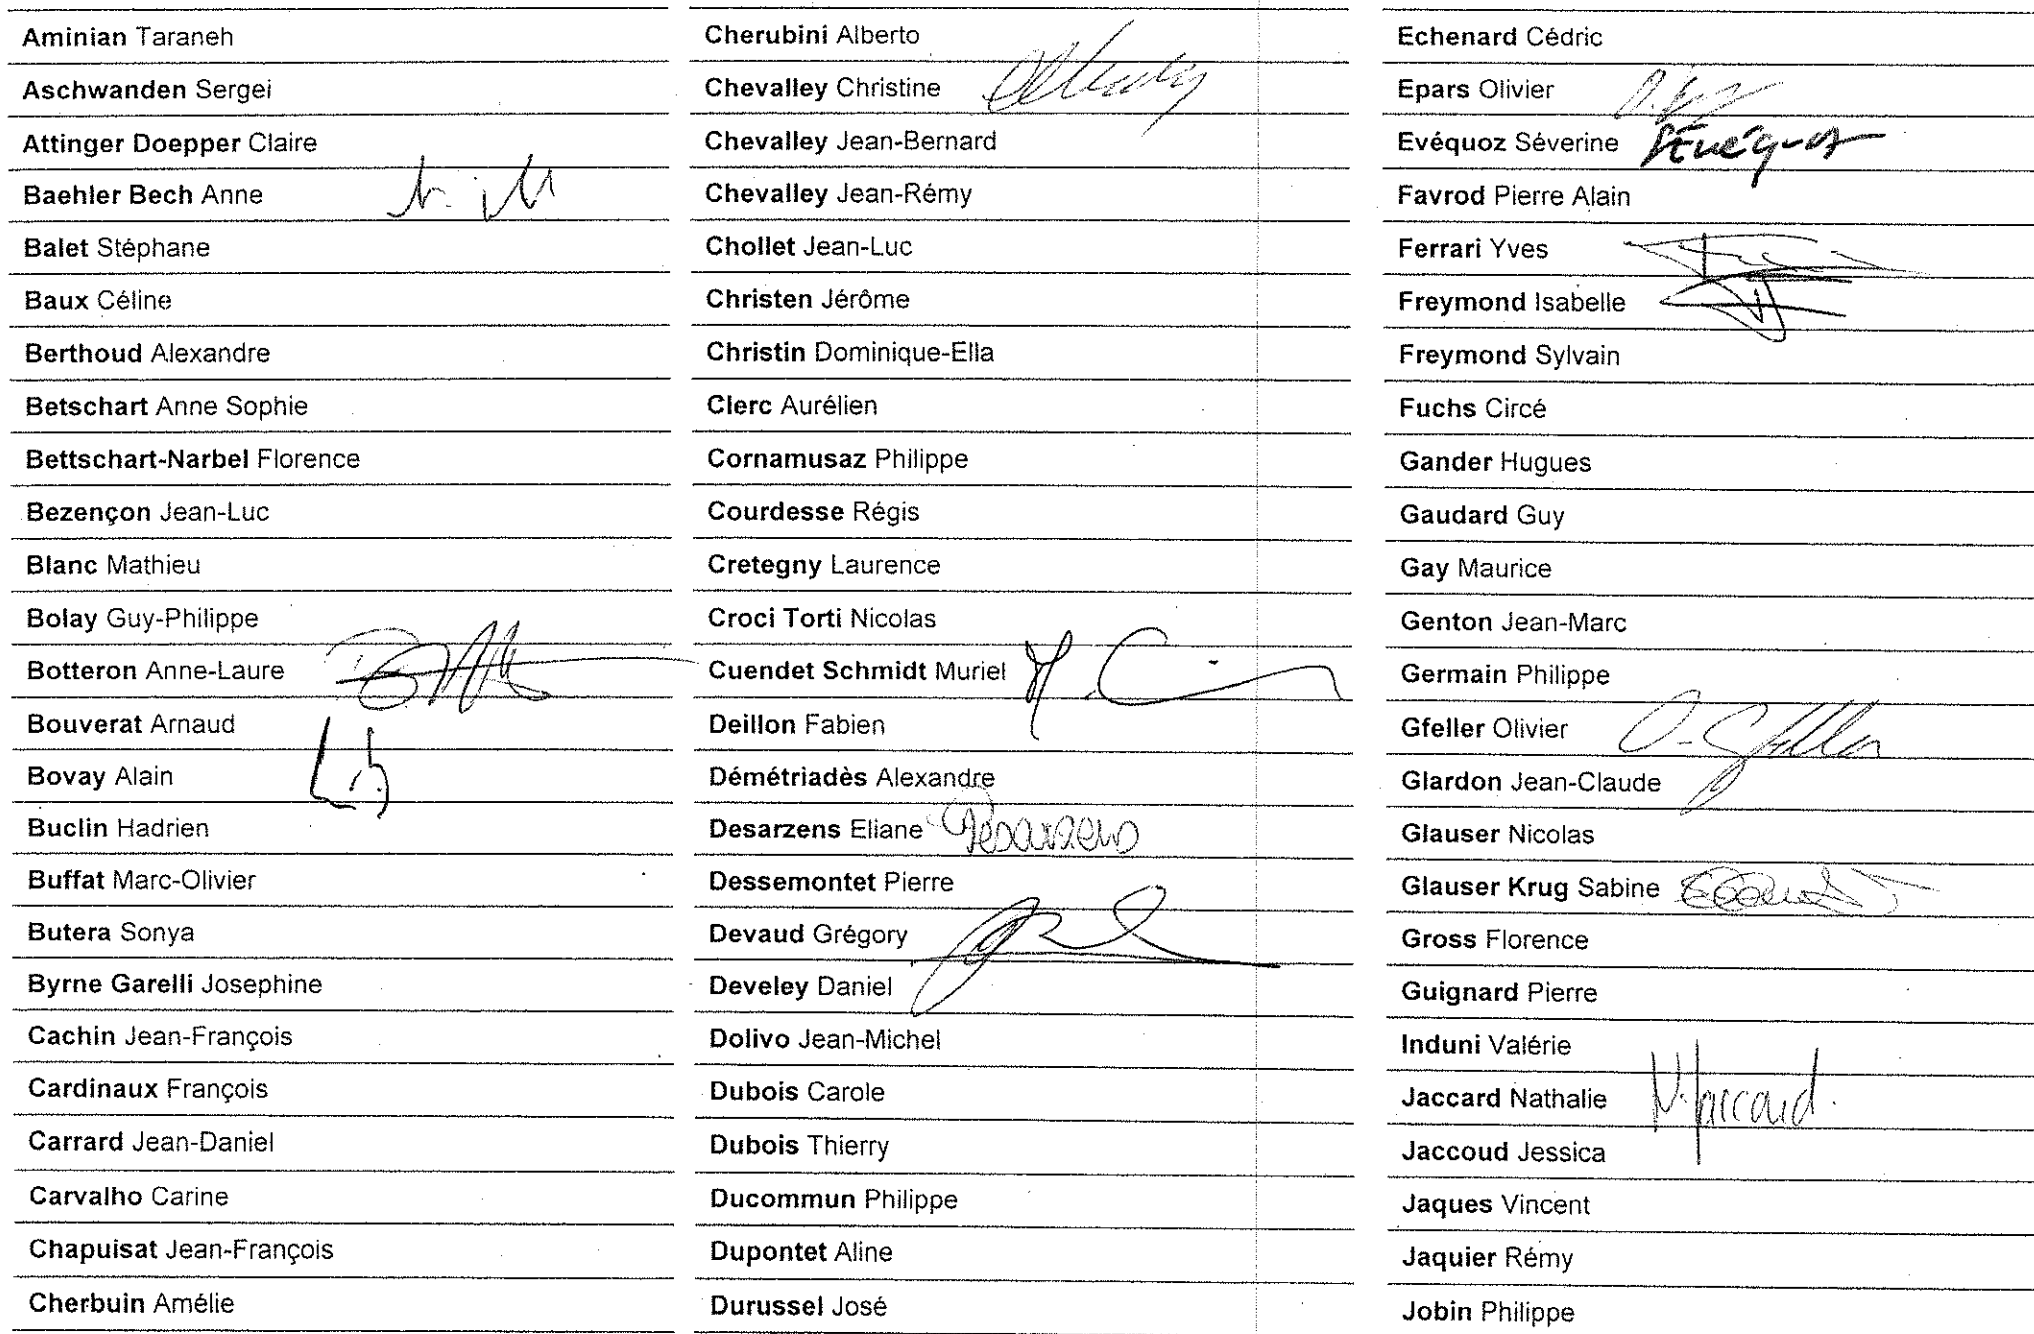 Aminian Taraneh
Aschwanden Sergei
Attinger Doepper Claire
Baehler Bech Anne
Balet Stéphane
Baux Céline
Berthoud Alexandre
Betschart Anne Sophie
Bettschart-Narbel Florence
Bezençon Jean-Luc
Blanc Mathieu
Bolay Guy-Philippe
Botteron Anne-Laure
Bouverat Arnaud
Bovay Alain
Buclin Hadrien
Buffat Marc-Olivier
Butera Sonya
Byrne Garelli Josephine
Cachin Jean-François
Cardinaux François
Carrard Jean-Daniel
Carvalho Carine
Chapuisat Jean-François
Cherbuin Amélie
Cherubini Alberto
Chevalley Christine
Chevalley Jean-Bernard
Chevalley Jean-Rémy
Chollet Jean-Luc
Christen Jérôme
Christin Dominique-Ella
Clerc Aurélien
Cornamusaz Philippe
Courdesse Régis
Cretegny Laurence
Croci Torti Nicolas
Cuendet Schmidt Muriel
Deillon Fabien
Démétriadès Alexandre
Desarzens Eliane Desarzens
Dessemontet Pierre
Devaud Grégory
Develey Daniel
Dolivo Jean-Michel
Dubois Carole
Dubois Thierry
Ducommun Philippe
Dupontet Aline
Durussel José
Echenard Cédric
Epars Olivier
Evéquoz Séverine SEvéquoz
Favrod Pierre Alain
Ferrari Yves
Freymond Isabelle
Freymond Sylvain
Fuchs Circé
Gander Hugues
Gaudard Guy
Gay Maurice
Genton Jean-Marc
Germain Philippe
Gfeller Olivier O. Gfeller
Glardon Jean-Claude
Glauser Nicolas
Glauser Krug Sabine
Gross Florence
Guignard Pierre
Induni Valérie
Jaccard Nathalie N. Jaccard.
Jaccoud Jessica
Jaques Vincent
Jaquier Rémy
Jobin Philippe